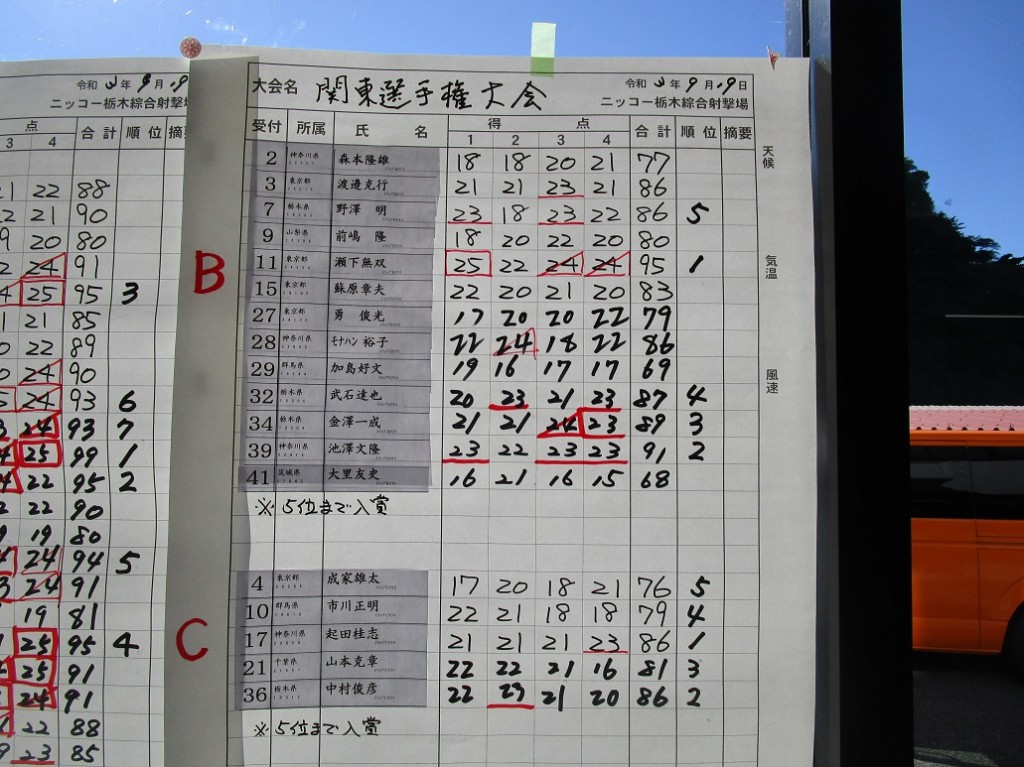 令和3年9月19
ニッコー栃木綜合射撃場
点 合計 順位 摘要
3 4
22 88
21 90
20 80
24 91
25 95 3
21 85
22 89
24 90
24 93 6
24 93 7
25 99 1
22 95 2
22 90
19 80
24 94 5
24 91
19 81
25 95 4
25 91
24 91
22 88
23 85
大会名 関東選手権大会 令和3年9月19日
ニッコー栃木綜合射撃場
受付 所属 氏名 得点 合計 順位 摘要
1 2 3 4
天候
気温
風速
B
2 神奈川県 森本隆雄 18 18 20 21 77
3 東京都 渡邉克行 21 21 23 21 86
7 栃木県 野澤 明 23 18 23 22 86 5
9 山梨県 前嶋 隆 18 20 22 20 80
11 東京都 瀬下無双 25 22 24 24 95 1
15 東京都 蘇原章夫 22 20 21 20 83
27 東京都 勇 俊光 17 20 20 22 79
28 神奈川県 モナハン 裕子 22 24 18 22 86
29 群馬県 加島好文 19 16 17 17 69
32 栃木県 武石達也 20 23 21 23 87 4
34 栃木県 金澤一成 21 21 24 23 89 3
39 神奈川県 池澤文隆 23 22 23 23 91 2
41 茨城県 大里友史 16 21 16 15 68
※ 5位まで入賞
C
4 東京都 成家雄太 17 20 18 21 76 5
10 群馬県 市川正明 22 21 18 18 79 4
17 神奈川県 起田桂志 21 21 21 23 86 1
21 千葉県 山本克章 22 22 21 16 81 3
36 栃木県 中村俊彦 22 23 21 20 86 2
※ 5位まで入賞